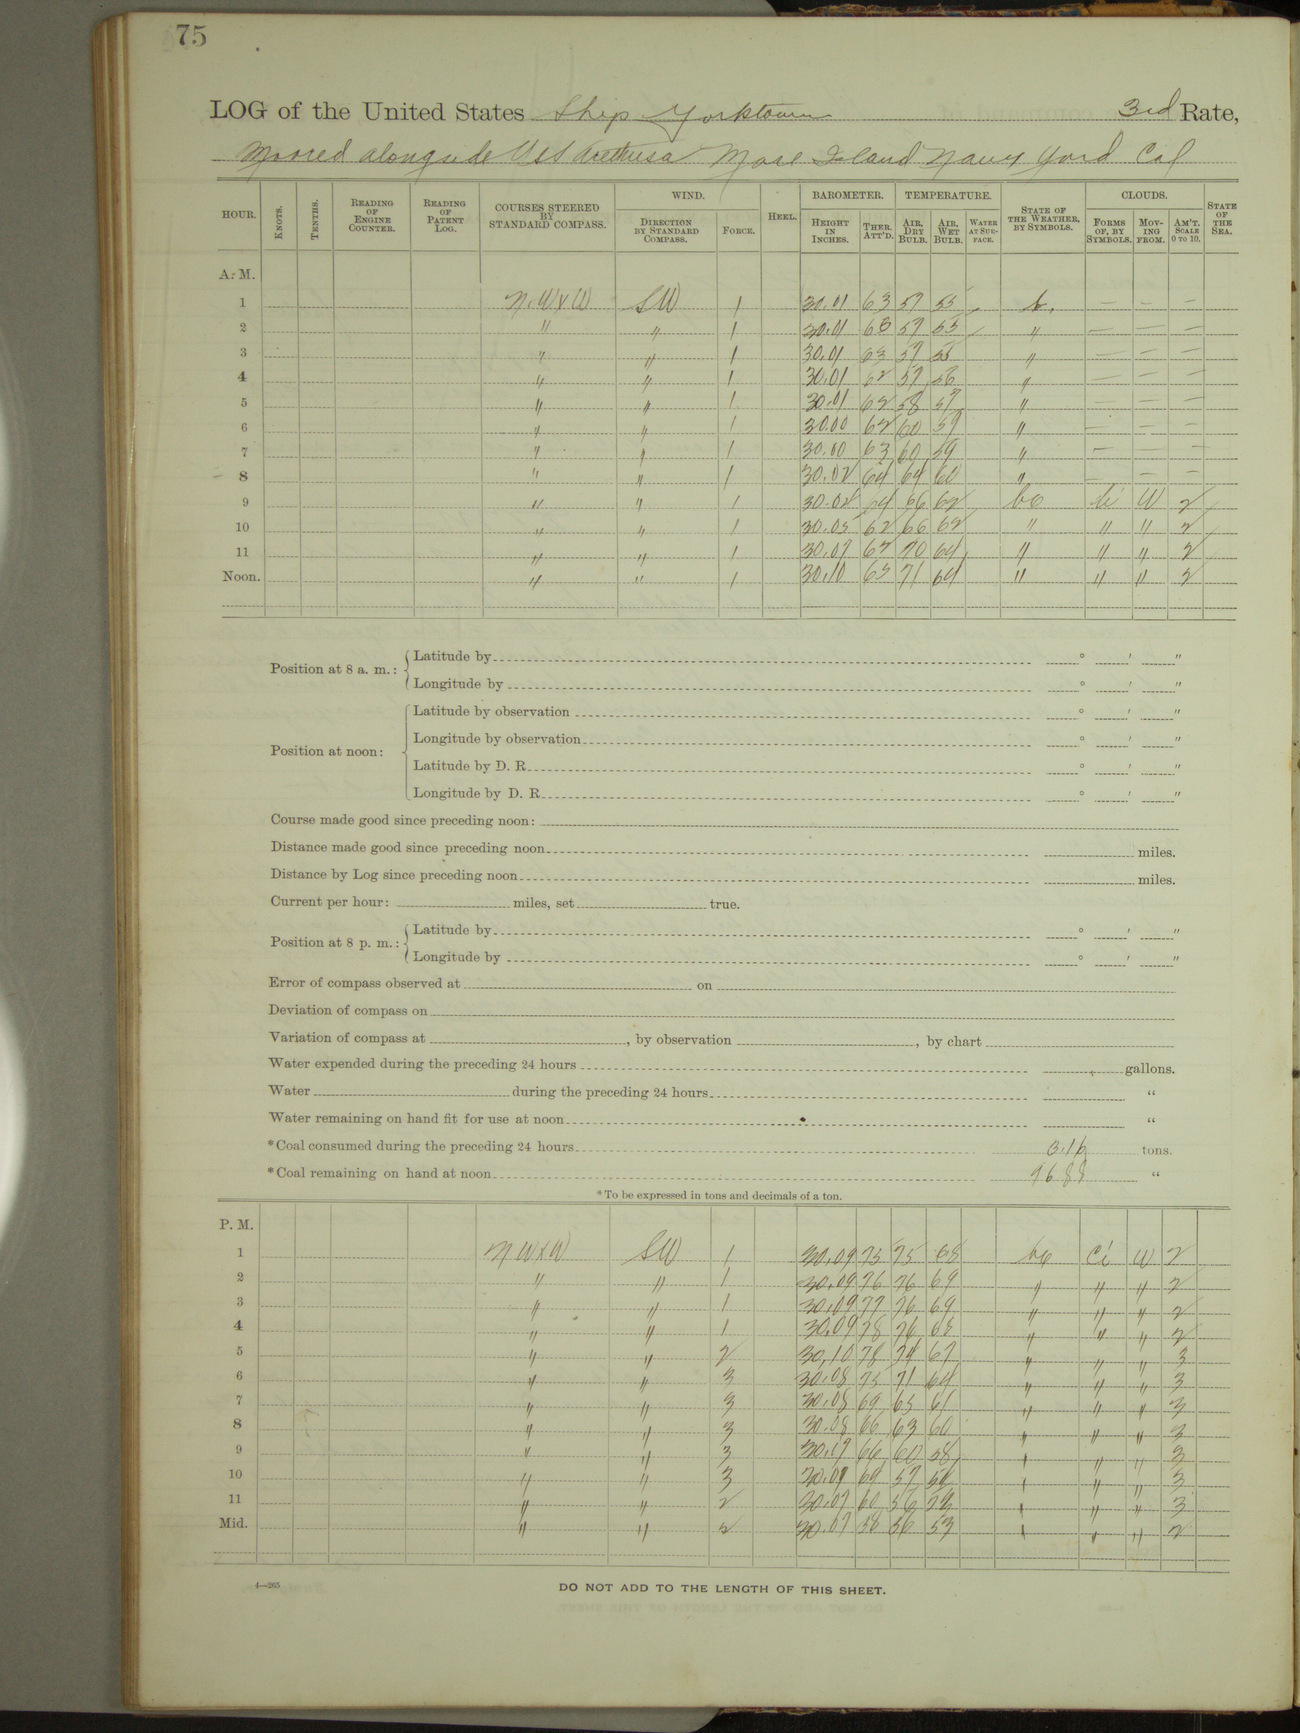 75
LOG of the United States Ship Yorktown 3rd Rate,
Moored alongside USS Arethusa Mare Island Navy Yard Cal
HOUR. KNOTS. TENTHS. READING OF ENGINE COUNTER. READING OF PATENT LOG. COURSES STEERED BY STANDARD COMPASS. WIND. DIRECTION BY STANDARD COMPASS. FORCE. HEEL. BAROMETER. HEIGHT IN INCHES. THER. ATT'D. TEMPERATURE. AIR, DRY BULB. AIR, WET BULB. WATER AT SURFACE. STATE OF THE WEATHER, BY SYMBOLS. CLOUDS. FORMS OF, BY SYMBOLS. MOVING FROM. AM'T. SCALE 0 TO 10. STATE OF THE SEA.
A. M.
1 N.WxW SW 1 30.01 63 57 55 b. — — —
2 " " 1 30.01 63 57 55 " — — —
3 " " 1 30.01 63 57 55 " — — —
4 " " 1 30.01 62 57 56 " — — —
5 " " 1 30.01 62 58 57 " — — —
6 " " 1 30.00 62 60 59 " — — —
7 " " 1 30.00 63 60 59 " — — —
8 " " 1 30.02 64 64 60 " — — —
9 " " 1 30.02 64 66 62 bc Ci W 2
10 " " 1 30.05 62 66 62 " " " 2
11 " " 1 30.07 62 70 64 " " " 2
Noon. " " 1 30.10 65 71 64 " " " 2
Position at 8 a. m.: Latitude by ° ′ ″
Longitude by ° ′ ″
Position at noon: Latitude by observation ° ′ ″
Longitude by observation ° ′ ″
Latitude by D. R. ° ′ ″
Longitude by D. R. ° ′ ″
Course made good since preceding noon:
Distance made good since preceding noon miles.
Distance by Log since preceding noon miles.
Current per hour: miles, set true.
Position at 8 p. m.: Latitude by ° ′ ″
Longitude by ° ′ ″
Error of compass observed at on
Deviation of compass on
Variation of compass at , by observation , by chart
Water expended during the preceding 24 hours gallons.
Water during the preceding 24 hours “
Water remaining on hand fit for use at noon “
*Coal consumed during the preceding 24 hours 3.16 tons.
*Coal remaining on hand at noon 96.88 “
*To be expressed in tons and decimals of a ton.
P. M.
1 NWxW SW 1 30.09 75 75 68 bc Ci W 2
2 " " 1 30.09 76 76 69 " " " 2
3 " " 1 30.09 77 76 69 " " " 2
4 " " 1 30.09 78 76 68 " " " 2
5 " " 2 30.10 78 74 67 " " " 3
6 " " 3 30.08 75 71 64 " " " 3
7 " " 3 30.08 69 65 61 " " " 3
8 " " 3 30.08 66 63 60 " " " 3
9 " " 3 30.07 66 60 58 " " " 3
10 " " 3 30.07 64 57 54 " " " 3
11 " " 2 30.07 60 56 " " " 3
Mid. " " 2 30.07 58 56 53 " " " 2
4—265
DO NOT ADD TO THE LENGTH OF THIS SHEET.